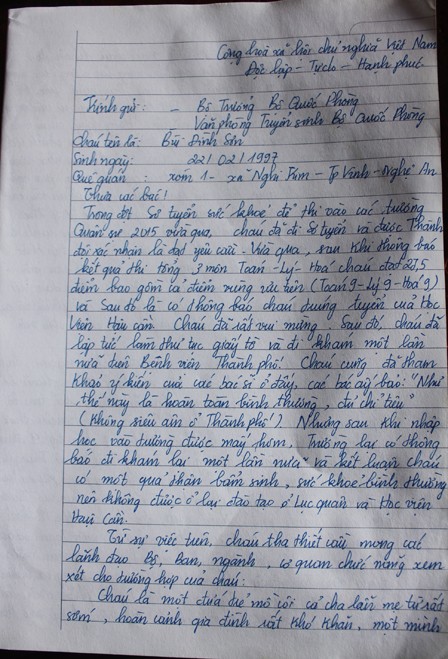 Cộng hoà xã hội chủ nghĩa Việt Nam
Độc lập - Tự do - Hạnh phúc
Kính gửi: - Bộ Trưởng Bộ Quốc Phòng
Văn phòng Tuyển sinh Bộ Quốc Phòng
Cháu tên là: Bùi Đình Sơn
Sinh ngày: 22/02/1997
Quê quán: xóm 1 - xã Nghi Kim - Tp Vinh - Nghệ An
Thưa các bác!
Trong đợt Sơ tuyển sức khoẻ để thi vào các trường
Quân sự 2015 vừa qua, cháu đã đi Sơ tuyển và được Thành
đội xác nhận là đạt yêu cầu. Vừa qua, sau khi thông báo
kết quả thi tổng 3 môn Toán - Lý - Hoá cháu đạt 28,5
điểm bao gồm cả điểm vùng ưu tiên (Toán 9 - Lý 9 - Hoá 9)
và Sau đó là có thông báo cháu trúng tuyển của Học
Viện Hậu cần. Cháu đã rất vui mừng. Sau đó, cháu đã
lập tức làm thủ tục giấy tờ và đi khám một lần
nữa trên Bệnh viện Thành phố. Cháu cũng đã tham
khảo ý kiến của các bác sĩ ở đây, các bác ấy bảo: "Như
thế này là hoàn toàn bình thường, đủ chỉ tiêu"
(Không siêu âm ở Thành phố). Nhưng sau khi nhập
học vào trường được mấy hôm, Trường lại có thông
báo đi khám lại một lần nữa và kết luận cháu
có một quả thận bẩm sinh, sức khoẻ bình thường
nên không được ở lại đào tạo ở Lục quân và Học viện
Hậu Cần.
Từ sự việc trên, cháu tha thiết cầu mong các
lãnh đạo Bộ, Ban, ngành, cơ quan chức năng xem
xét cho trường hợp của cháu:
Cháu là một đứa trẻ mồ côi cả cha lẫn mẹ từ rất
sớm, hoàn cảnh gia đình rất khó khăn, một mình